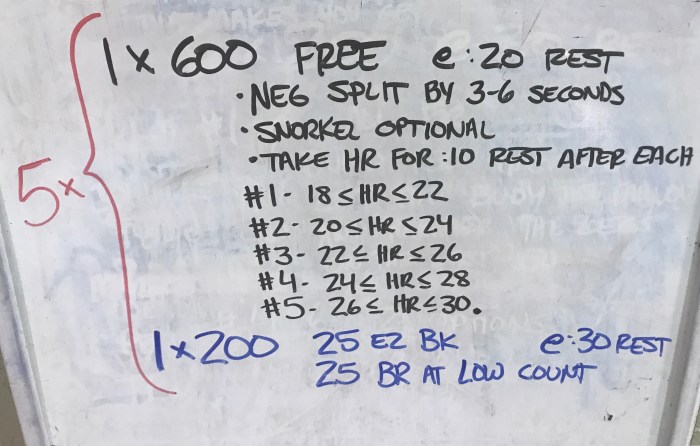 5x
1 x 600 FREE e:20 REST
• NEG SPLIT BY 3-6 SECONDS
• SNORKEL OPTIONAL
• TAKE HR FOR :10 REST AFTER EACH
#1- 18≤HR≤22
#2- 20≤HR≤24
#3- 22≤HR≤26
#4- 24≤HR≤28
#5- 26≤HR≤30.
1x200 25 EZ BK e:30 REST
25 BR AT LOW COUNT